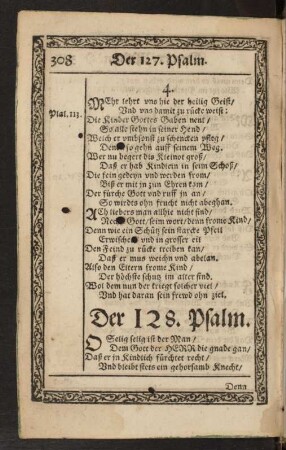 308 Der 127. Psalm.
4.
MEhr lehrt vns hie der heilig Geist/
Psal. 113. Vnd vns damit zu rücke weist:
Die Kinder Gottes Gaben nent/
So alle stehn in seiner Hend/
Welch er vmbsonst zu schencken pfleg/
Den so gehn auff seinem Weg.
Wer nu begert diß Kleinot groß/
Daß er hab Kindlein in seim Schoß/
Die fein gedeyn vnd werden from/
Biß er mit jn zun Ehren kom/
Der fürcht Gott vnd ruff jn an/
So wirdts ohn frucht nicht abgehan.
ACh liebers man allhie nicht find/
Gott/ seim wort/ denn frome Kind/
Denn wie ein Schütz sein starcke Pfeil
Erwischet vnd in grosser eil
Den Feind zu rücke treiben kan/
Daß er mus weichn vnd abelan.
Also den Eltern frome Kind/
Der höchste schutz im alter sind.
Wol dem nun der kriegt solcher viel/
Vnd hat daran sein frewd ohn ziel.
Der 128. Psalm.
O Selig selig ist der Man/
Dem Gott der HERR die gnade gan/
Daß er in Kindlich fürchtet recht/
Vnd bleibt stets ein gehorsamb Knecht/
Denn